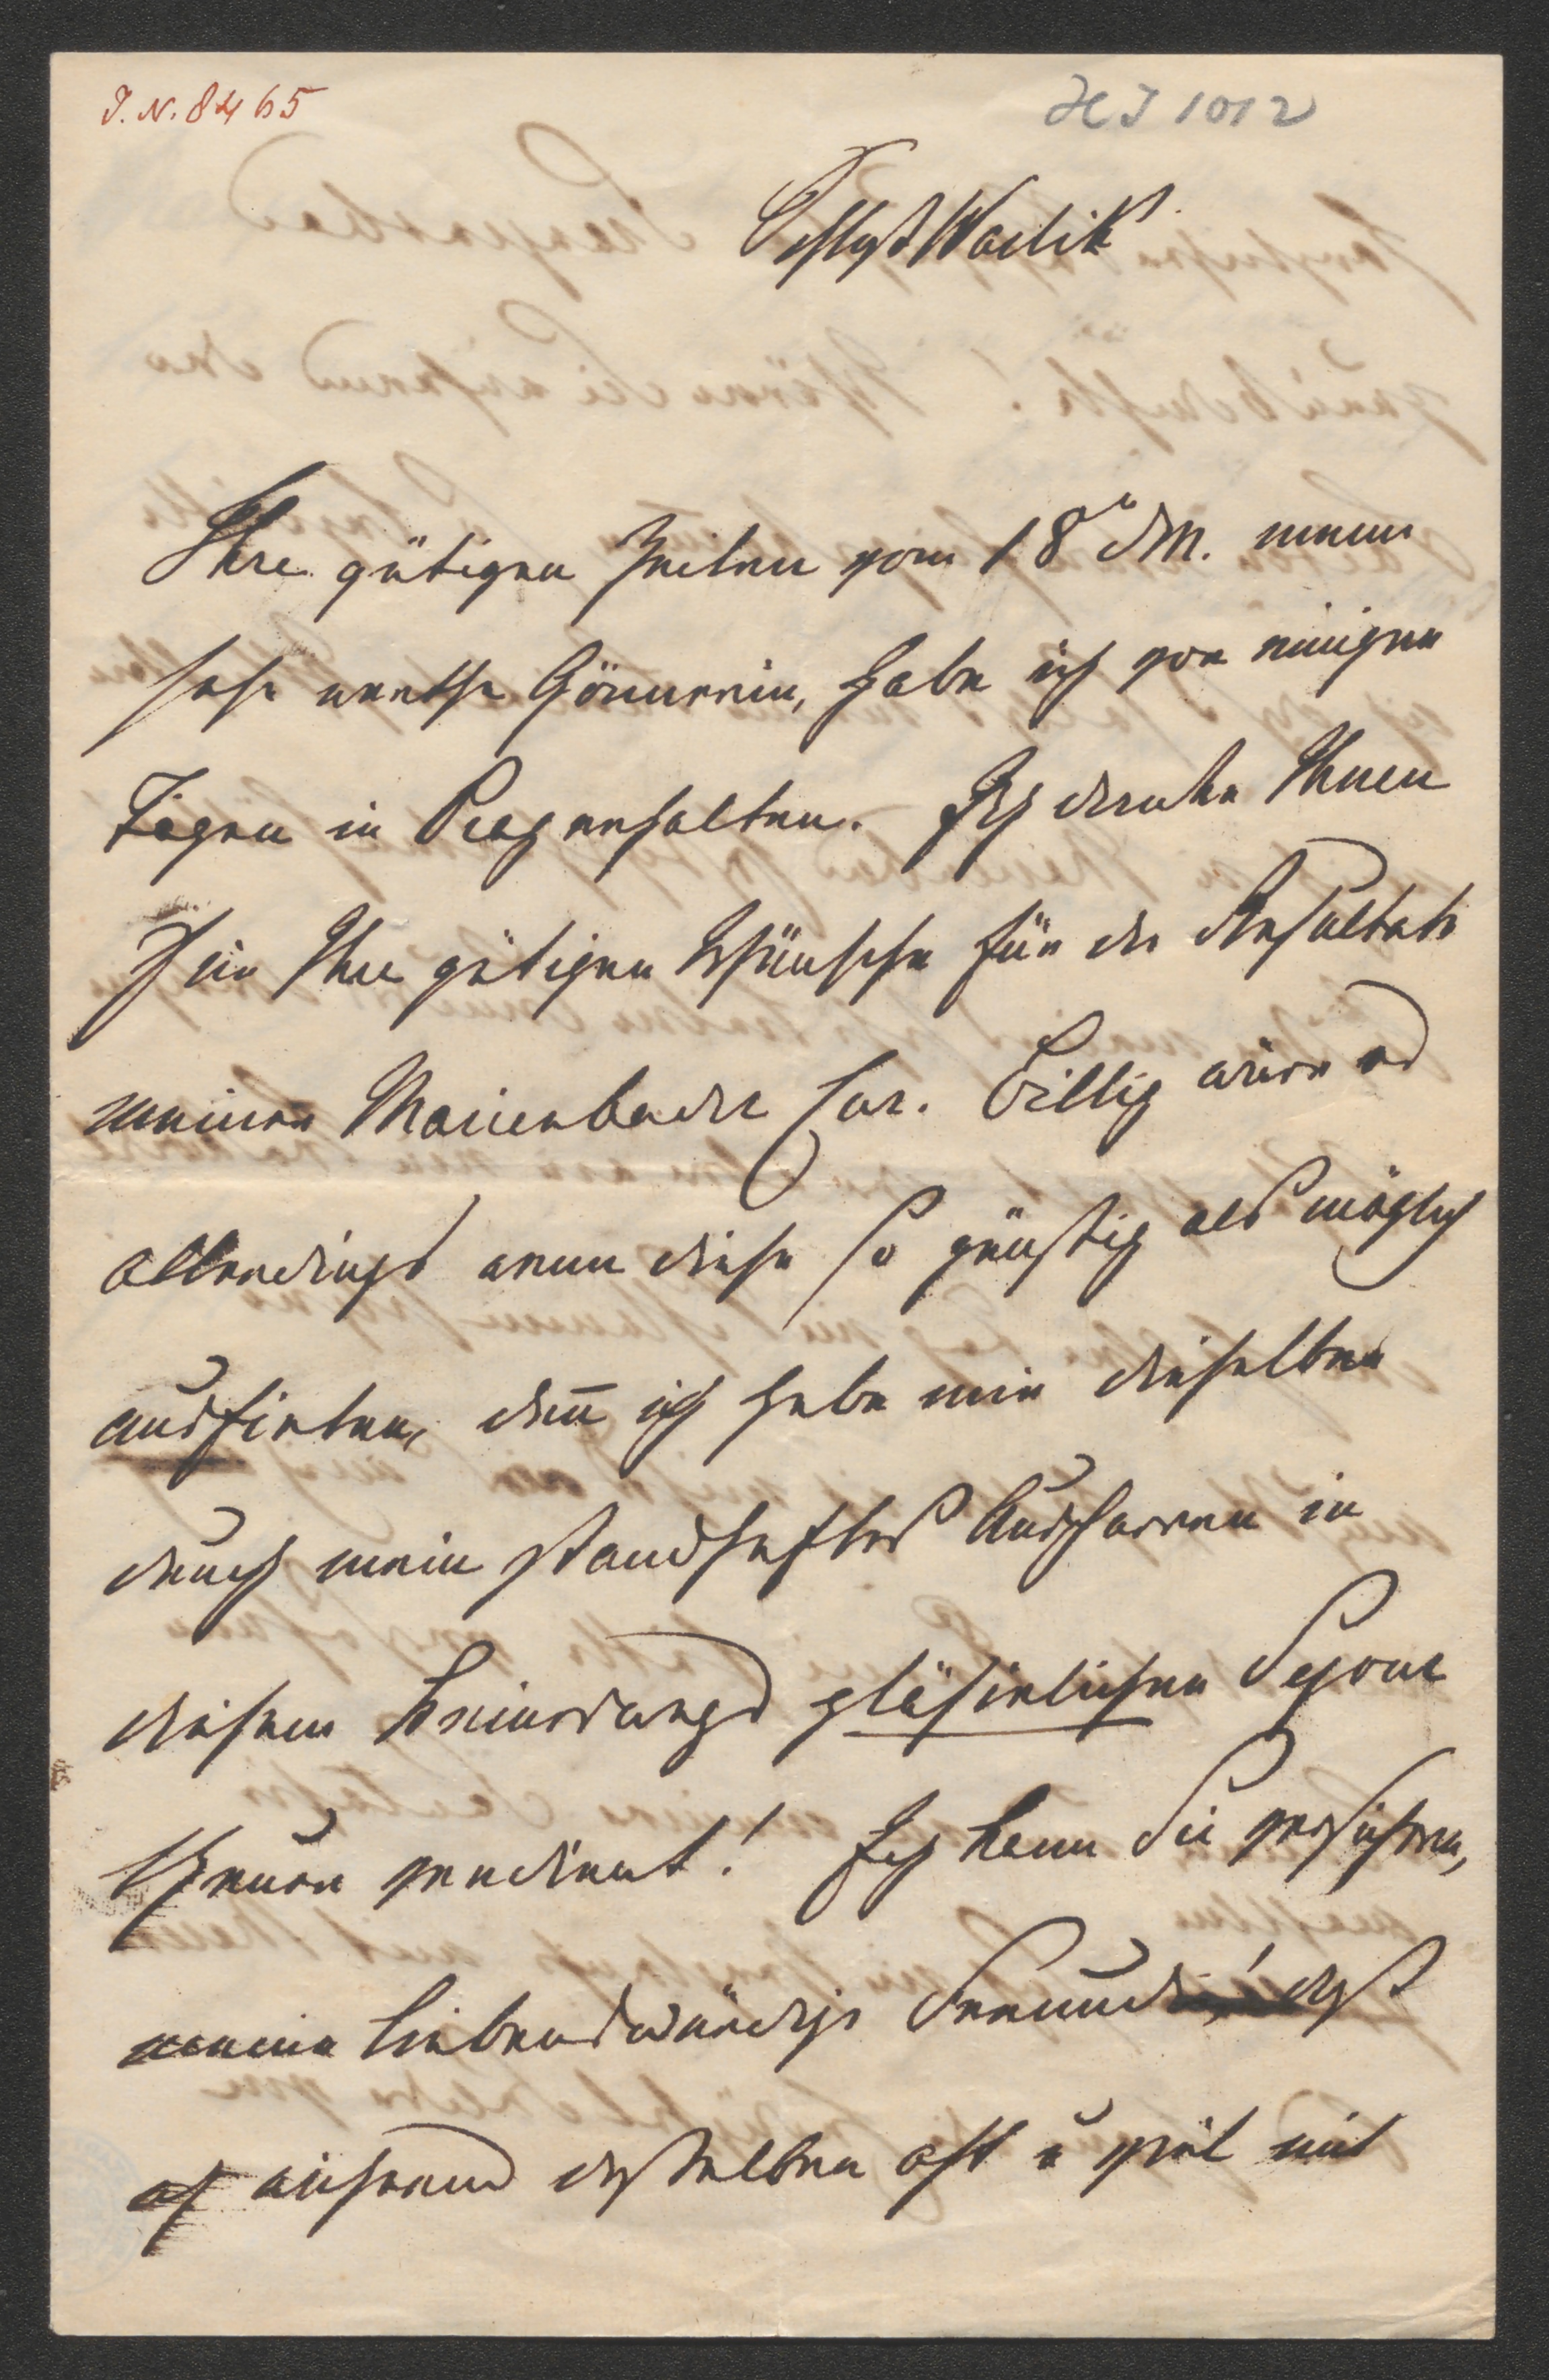 J. N. 8465
HJ 1012
Schloß Wartik
Ihre gütigen Zeilen vom 18t d M. meine
sehr werthe Gönnerin, habe ich vor einigen
Tagen in Prag erhalten. Ich danke Ihnen
für Ihre gütigen Wünsche für die Resultate
meiner Marienbader Cur. Billig wäre es
allerdings wenn diese so günstig als möglich
ausfielen, deñ ich habe mir dieselben
durch mein standhaftes Ausharren in
diesem keineswegs pläsirlichen Sejour
theuer verdient! Ich kann Sie versichern,
meine liebenswürdige Freundin! daß
ich während desselben oft u viel mit